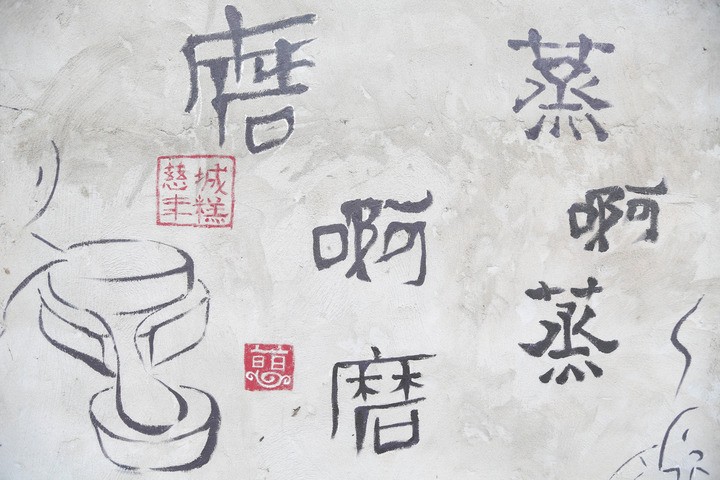 蒸啊蒸
磨啊磨
慈城
年糕